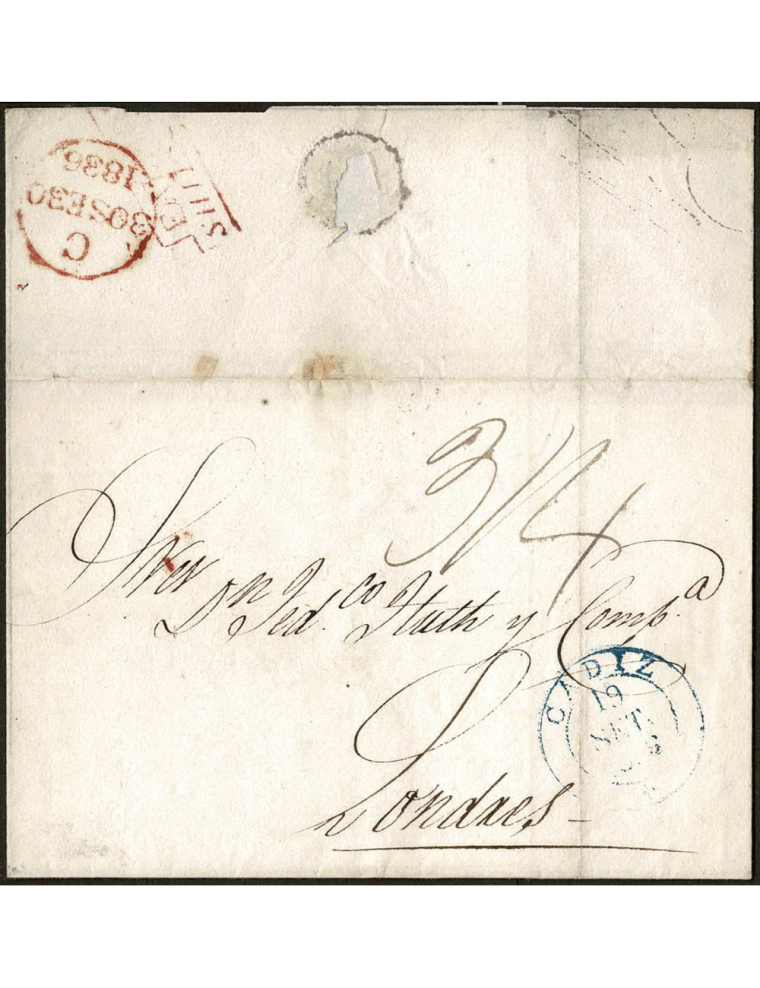 C
30SE30
1836
3/4
Sres
Dn Fed.co Huth y Comp.a
Londres
CADIZ
19
SET.